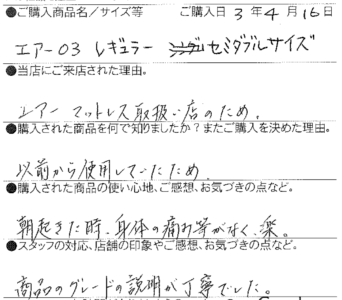 ●ご購入商品名／サイズ等　ご購入日 3 年 4 月 16 日
エアー03 レギュラー セミダブルサイズ
●当店にご来店された理由。
エアー マットレス取扱い店のため。
●購入された商品を何で知りましたか？またご購入を決めた理由。
以前から使用していたため
●購入された商品の使い心地、ご感想、お気づきの点など。
朝起きた時、身体の痛み等がなく、楽。
●スタッフの対応、店舗の印象やご感想、お気づきの点など。
商品のグレードの説明が丁寧でした。